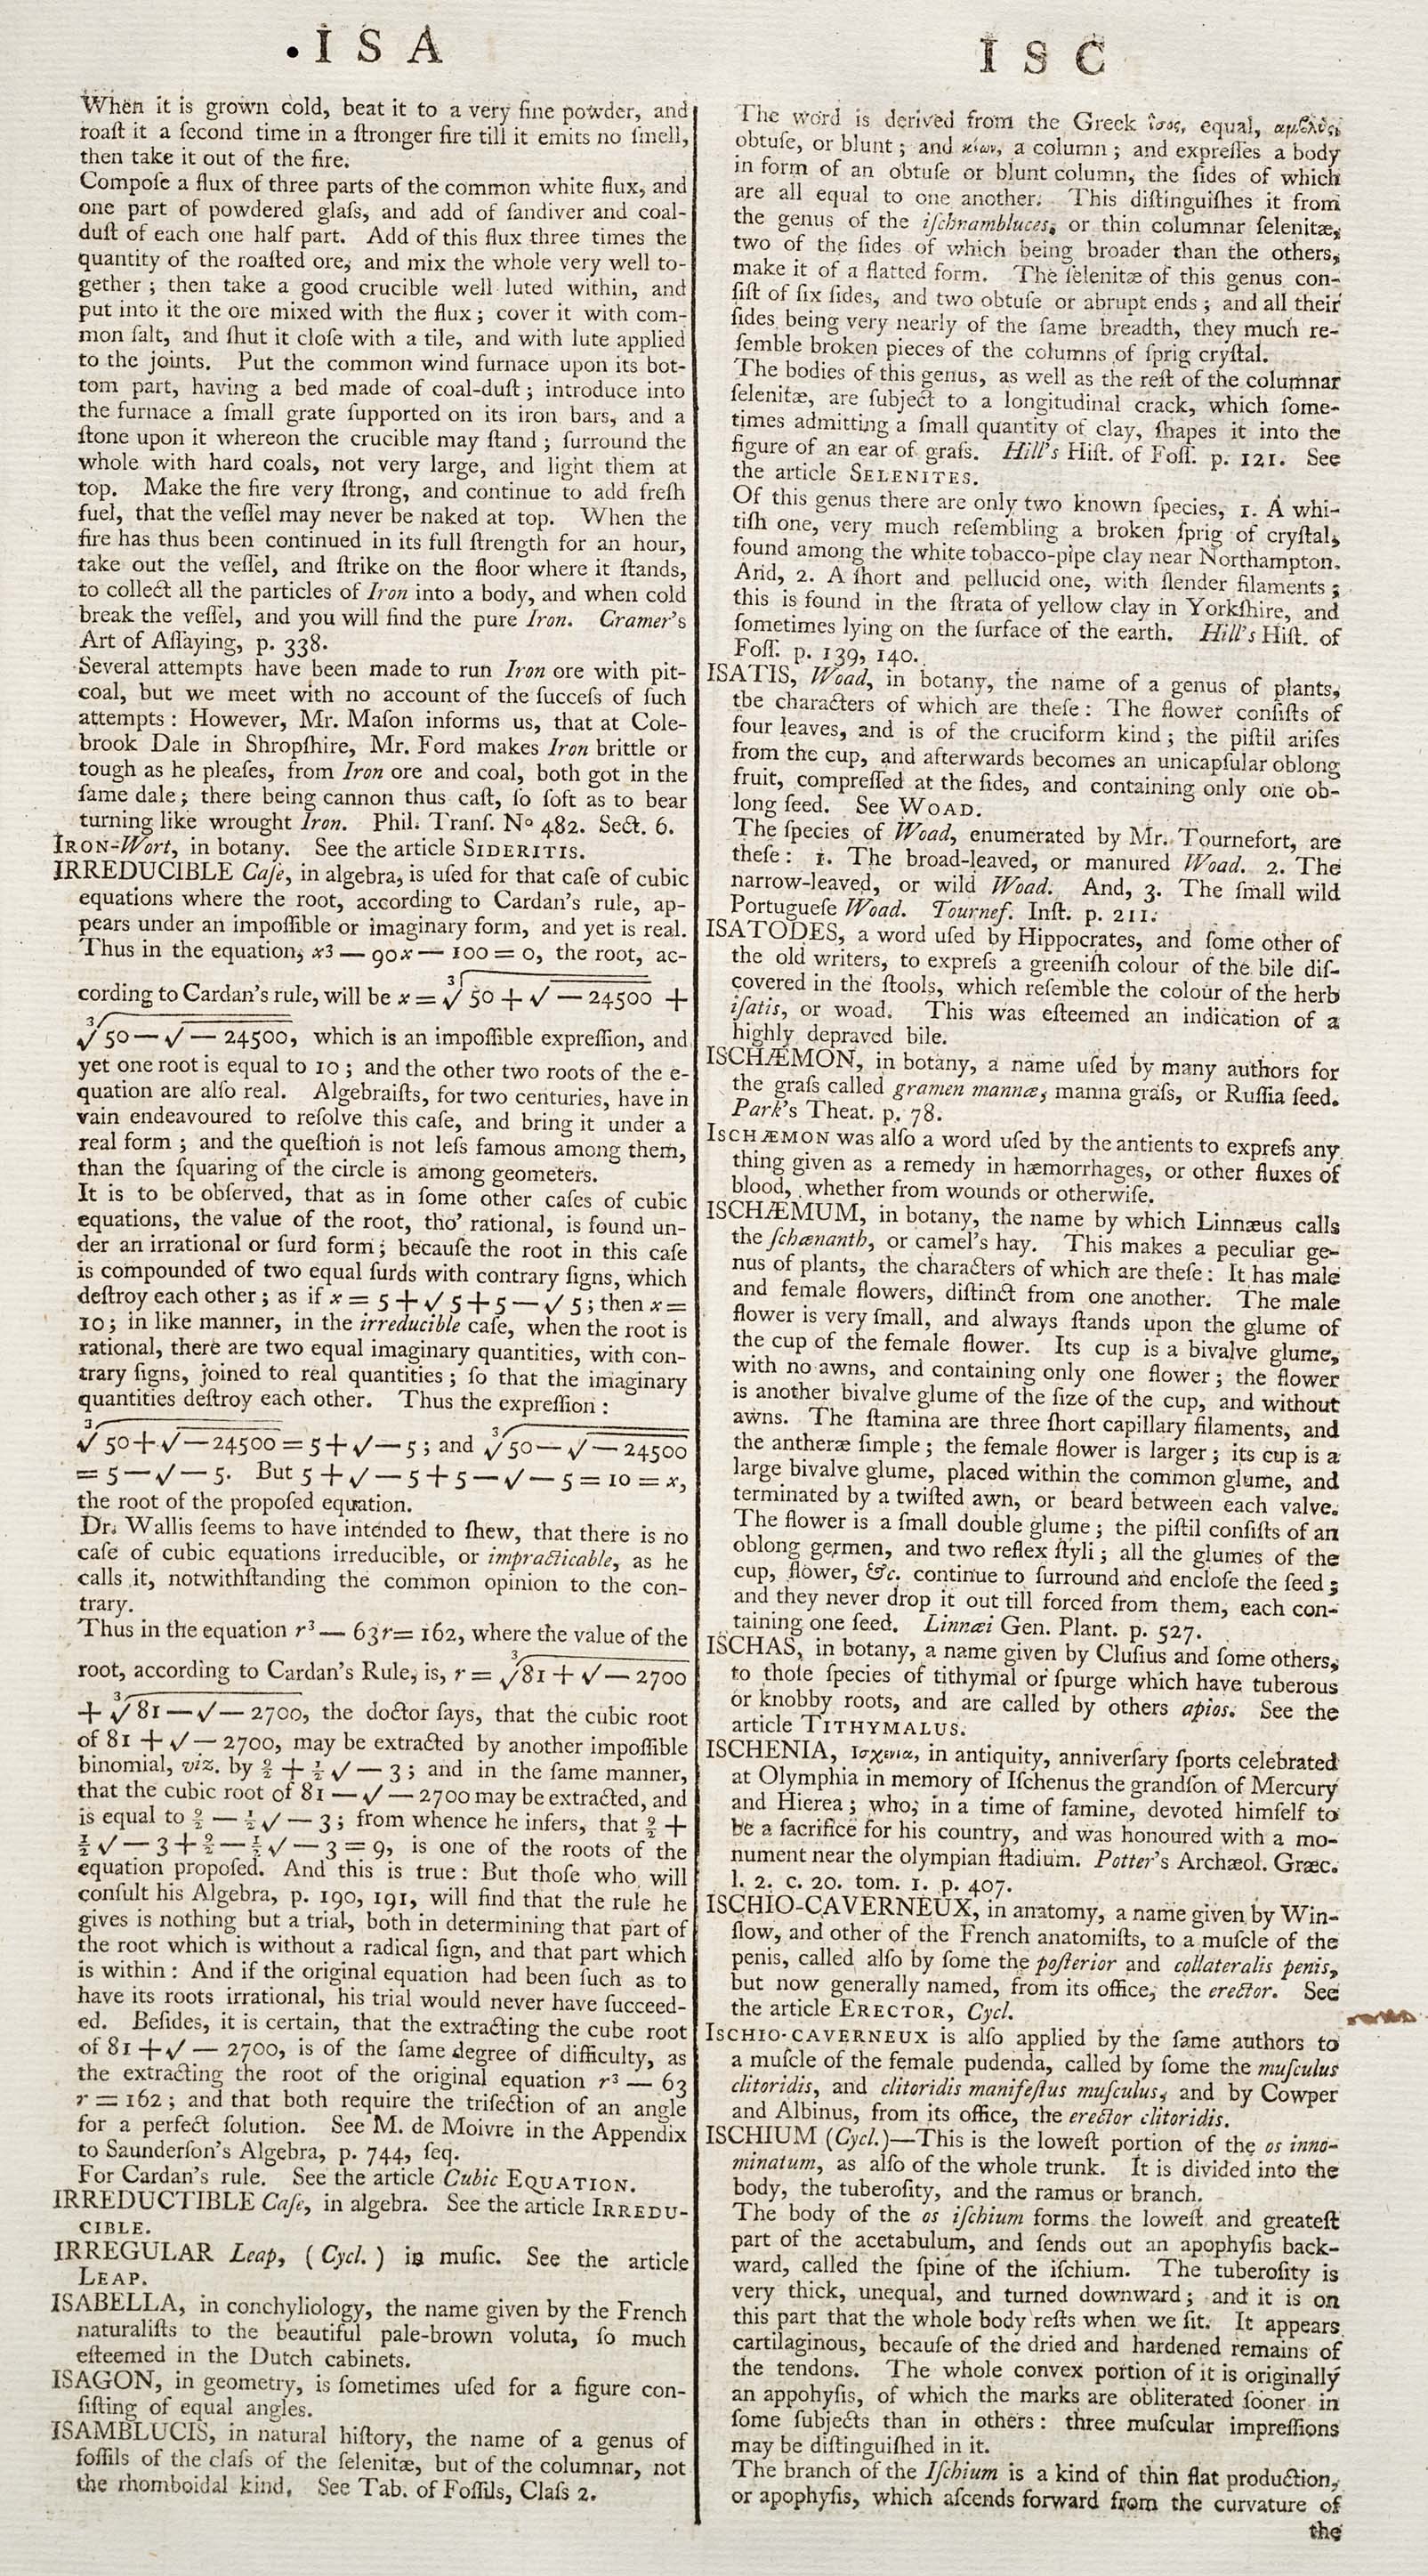 I S A
When it is grown cold, beat it to a very fine powder, and
roaſt it a ſecond time in a ſtronger fire till it emits no ſmell,
then take it out of the fire.
Compoſe a flux of three parts of the common white flux, and
one part of powdered glaſs, and add of ſandiver and coal-
duſt of each one half part. Add of this flux three times the
quantity of the roaſted ore, and mix the whole very well to-
gether ; then take a good crucible well luted within, and
put into it the ore mixed with the flux ; cover it with com-
mon ſalt, and ſhut it cloſe with a tile, and with lute applied
to the joints. Put the common wind furnace upon its bot-
tom part, having a bed made of coal-duſt ; introduce into
the furnace a ſmall grate ſupported on its iron bars, and a
ſtone upon it whereon the crucible may ſtand ; ſurround the
whole with hard coals, not very large, and light them at
top. Make the fire very ſtrong, and continue to add freſh
fuel, that the veſſel may never be naked at top. When the
fire has thus been continued in its full ſtrength for an hour,
take out the veſſel, and ſtrike on the floor where it ſtands,
to collect all the particles of Iron into a body, and when cold
break the veſſel, and you will find the pure Iron. Cramer's
Art of Aſſaying, p. 338.
Several attempts have been made to run Iron ore with pit-
coal, but we meet with no account of the ſucceſs of ſuch
attempts : However, Mr. Maſon informs us, that at Cole-
brook Dale in Shropſhire, Mr. Ford makes Iron brittle or
tough as he pleaſes, from Iron ore and coal, both got in the
ſame dale ; there being cannon thus caſt, ſo ſoft as to bear
turning like wrought Iron. Phil. Tranſ. Nº 482. Sect. 6.
IRON-Wort, in botany. See the article SIDERITIS.
IRREDUCIBLE Caſe, in algebra, is uſed for that caſe of cubic
equations where the root, according to Cardan's rule, ap-
pears under an impoſſible or imaginary form, and yet is real.
Thus in the equation, x³ — 90x — 100 = 0, the root, ac-
cording to Cardan's rule, will be x = ³√ 50 + √ — 24500 +
³√ 50 — √ — 24500, which is an impoſſible expreſſion, and
yet one root is equal to 10 ; and the other two roots of the e-
quation are alſo real. Algebraiſts, for two centuries, have in
vain endeavoured to reſolve this caſe, and bring it under a
real form ; and the queſtion is not leſs famous among them,
than the ſquaring of the circle is among geometers.
It is to be obſerved, that as in ſome other caſes of cubic
equations, the value of the root, tho' rational, is found un-
der an irrational or ſurd form ; becauſe the root in this caſe
is compounded of two equal ſurds with contrary ſigns, which
deſtroy each other ; as if x = 5 + √ 5 + 5 — √ 5 ; then x =
10 ; in like manner, in the irreducible caſe, when the root is
rational, there are two equal imaginary quantities, with con-
trary ſigns, joined to real quantities ; ſo that the imaginary
quantities deſtroy each other. Thus the expreſſion :
³√ 50 + √ — 24500 = 5 + √ — 5 ; and ³√ 50 — √ — 24500
= 5 — √ — 5. But 5 + √ — 5 + 5 — √ — 5 = 10 = x,
the root of the propoſed equation.
Dr. Wallis ſeems to have intended to ſhew, that there is no
caſe of cubic equations irreducible, or impracticable, as he
calls it, notwithſtanding the common opinion to the con-
trary.
Thus in the equation r³ — 63r = 162, where the value of the
root, according to Cardan's Rule, is, r = ³√ 81 + √ — 2700
+ ³√ 81 — √ — 2700, the doctor ſays, that the cubic root
of 81 + √ — 2700, may be extracted by another impoſſible
binomial, viz. by 9/2 + 1/2 √ — 3 ; and in the ſame manner,
that the cubic root of 81 — √ — 2700 may be extracted, and
is equal to 9/2 — 1/2 √ — 3 ; from whence he infers, that 9/2 +
1/2 √ — 3 + 9/2 — 1/2 √ — 3 = 9, is one of the roots of the
equation propoſed. And this is true : But thoſe who will
conſult his Algebra, p. 190, 191, will find that the rule he
gives is nothing but a trial, both in determining that part of
the root which is without a radical ſign, and that part which
is within : And if the original equation had been ſuch as to
have its roots irrational, his trial would never have ſucceed-
ed. Beſides, it is certain, that the extracting the cube root
of 81 + √ — 2700, is of the ſame degree of difficulty, as
the extracting the root of the original equation r³ — 63
r = 162 ; and that both require the triſection of an angle
for a perfect ſolution. See M. de Moivre in the Appendix
to Saunderſon's Algebra, p. 744, ſeq.
For Cardan's rule. See the article Cubic EQUATION.
IRREDUCTIBLE Caſe, in algebra. See the article IRREDU-
CIBLE.
IRREGULAR Leap, (Cycl.) in muſic. See the article
LEAP.
ISABELLA, in conchyliology, the name given by the French
naturaliſts to the beautiful pale-brown voluta, ſo much
eſteemed in the Dutch cabinets.
ISAGON, in geometry, is ſometimes uſed for a figure con-
ſiſting of equal angles.
ISAMBLUCIS, in natural hiſtory, the name of a genus of
foſſils of the claſs of the ſelenitæ, but of the columnar, not
the rhomboidal kind. See Tab. of Foſſils, Claſs 2.
I S C
The word is derived from the Greek ἶσος, equal, αμβλὺς,
obtuſe, or blunt ; and κίων, a column ; and expreſſes a body
in form of an obtuſe or blunt column, the ſides of which
are all equal to one another. This diſtinguiſhes it from
the genus of the iſchnambluces, or thin columnar ſelenitæ,
two of the ſides of which being broader than the others,
make it of a flatted form. The ſelenitæ of this genus con-
ſiſt of ſix ſides, and two obtuſe or abrupt ends ; and all their
ſides being very nearly of the ſame breadth, they much re-
ſemble broken pieces of the columns of ſprig cryſtal.
The bodies of this genus, as well as the reſt of the columnar
ſelenitæ, are ſubject to a longitudinal crack, which ſome-
times admitting a ſmall quantity of clay, ſhapes it into the
figure of an ear of graſs. Hill's Hiſt. of Foſſ. p. 121. See
the article SELENITES.
Of this genus there are only two known ſpecies, 1. A whi-
tiſh one, very much reſembling a broken ſprig of cryſtal,
found among the white tobacco-pipe clay near Northampton.
And, 2. A ſhort and pellucid one, with ſlender filaments ;
this is found in the ſtrata of yellow clay in Yorkſhire, and
ſometimes lying on the ſurface of the earth. Hill's Hiſt. of
Foſſ. p. 139, 140.
ISATIS, Woad, in botany, the name of a genus of plants,
tbe characters of which are theſe : The flower conſiſts of
four leaves, and is of the cruciform kind ; the piſtil ariſes
from the cup, and afterwards becomes an unicapſular oblong
fruit, compreſſed at the ſides, and containing only one ob-
long ſeed. See WOAD.
The ſpecies of Woad, enumerated by Mr. Tournefort, are
theſe : 1. The broad-leaved, or manured Woad. 2. The
narrow-leaved, or wild Woad. And, 3. The ſmall wild
Portugueſe Woad. Tournef. Inſt. p. 211.
ISATODES, a word uſed by Hippocrates, and ſome other of
the old writers, to expreſs a greeniſh colour of the bile diſ-
covered in the ſtools, which reſemble the colour of the herb
iſatis, or woad. This was eſteemed an indication of a
highly depraved bile.
ISCHÆMON, in botany, a name uſed by many authors for
the graſs called gramen mannæ, manna graſs, or Ruſſia ſeed.
Park's Theat. p. 78.
ISCHÆMON was alſo a word uſed by the antients to expreſs any
thing given as a remedy in hæmorrhages, or other fluxes of
blood, whether from wounds or otherwiſe.
ISCHÆMUM, in botany, the name by which Linnæus calls
the ſchænanth, or camel's hay. This makes a peculiar ge-
nus of plants, the characters of which are theſe : It has male
and female flowers, diſtinct from one another. The male
flower is very ſmall, and always ſtands upon the glume of
the cup of the female flower. Its cup is a bivalve glume,
with no awns, and containing only one flower ; the flower
is another bivalve glume of the ſize of the cup, and without
awns. The ſtamina are three ſhort capillary filaments, and
the antheræ ſimple ; the female flower is larger ; its cup is a
large bivalve glume, placed within the common glume, and
terminated by a twiſted awn, or beard between each valve.
The flower is a ſmall double glume ; the piſtil conſiſts of an
oblong germen, and two reflex ſtyli ; all the glumes of the
cup, flower, &c. continue to ſurround and encloſe the ſeed ;
and they never drop it out till forced from them, each con-
taining one ſeed. Linnæi Gen. Plant. p. 527.
ISCHAS, in botany, a name given by Cluſius and ſome others,
to thoſe ſpecies of tithymal or ſpurge which have tuberous
or knobby roots, and are called by others apios. See the
article TITHYMALUS.
ISCHENIA, Ισχενια, in antiquity, anniverſary ſports celebrated
at Olymphia in memory of Iſchenus the grandſon of Mercury
and Hierea ; who, in a time of famine, devoted himſelf to
be a ſacrifice for his country, and was honoured with a mo-
nument near the olympian ſtadium. Potter's Archæol. Græc.
l. 2. c. 20. tom. 1. p. 407.
ISCHIO-CAVERNEUX, in anatomy, a name given by Win-
ſlow, and other of the French anatomiſts, to a muſcle of the
penis, called alſo by ſome the poſterior and collateralis penis,
but now generally named, from its office, the erector. See
the article ERECTOR, Cycl.
ISCHIO-CAVERNEUX is alſo applied by the ſame authors to
a muſcle of the female pudenda, called by ſome the muſculus
clitoridis, and clitoridis manifeſtus muſculus, and by Cowper
and Albinus, from its office, the erector clitoridis.
ISCHIUM (Cycl.)—This is the loweſt portion of the os inno-
minatum, as alſo of the whole trunk. It is divided into the
body, the tuberoſity, and the ramus or branch.
The body of the os iſchium forms the loweſt and greateſt
part of the acetabulum, and ſends out an apophyſis back-
ward, called the ſpine of the iſchium. The tuberoſity is
very thick, unequal, and turned downward ; and it is on
this part that the whole body reſts when we ſit. It appears
cartilaginous, becauſe of the dried and hardened remains of
the tendons. The whole convex portion of it is originally
an appohyſis, of which the marks are obliterated ſooner in
ſome ſubjects than in others : three muſcular impreſſions
may be diſtinguiſhed in it.
The branch of the Iſchium is a kind of thin flat production,
or apophyſis, which aſcends forward from the curvature of
the